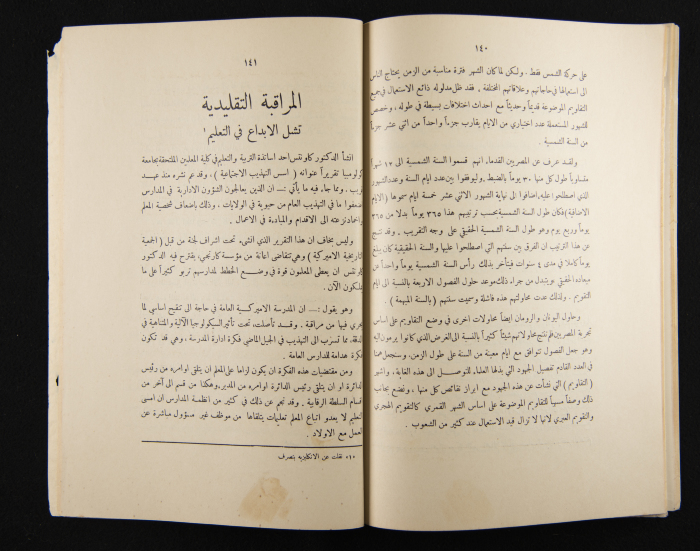 ١٤٠
على حركة الشمس فقط . ولكن لما كان الشهر فترة مناسبة من الزمن يحتاج الناس
الى استعمالها في حاجاتهم وعلاقاتهم المختلفة . فقد ظل مدلوله ذائع الاستعمال في جميع
التقاويم الموضوعة قديثاً وحديثاً مع احداث اختلافات بسيطة في طوله . وخصص
للشهور المستعملة عدد اختياري من الايام يقارب جزءاً واحداً من اثني عشر جزءاً
من السنة الشمسية .
ولقد عرف عن المصريين القدماء انهم قسموا السنة الشمسية الى ١٢ شهراً
متساوياً طول كل منها ٣٠ يوماً بالضبط . وليوفقوا بين عدد ايام السنة وعدد الشهور
الذي اصطلحوا عليه اضافوا الى نهاية الشهور الاثني عشر خمسة ايام سموها (الايام
الاضافية) فكان طول السنة الشمسية بحسب ترتيبهم هذا ٣٦٥ يوماً بدلا من ٣٦٥
يوماً وربع يوم وهو طول السنة الشمسية الحقيقي على وجه التقريب . وقد نتج
عن هذا الترتيب ان الفرق بين سنتهم التي اصطلحوا عليها والسنة الحقيقية كان يبلغ
يوماً كاملا في مدى ٤ سنوات فيتأخر بذلك رأس السنة الشمسية يوماً واحداً عن
ميعاده الحقيقي ويبتدل من جراء ذلك موعد حلول الفصول الاربعة بالنسبة الى ايام
التقويم . ولذلك عدت محاولتهم هذه فاشلة وسميت سنتهم (بالسنة المبهمة) .
وحاول اليونان والرومان ايضاً محاولات اخرى في وضع التقاويم على اساس
تجربة المصريين فلم تنتج محاولاتهم شيئاً كثيراً بالنسبة الى الغرض الذي كانوا يرمون اليه
وهو جعل الفصول تتوافق مع ايام معينة من السنة على طول الزمن . وسنجعل همنا
في العدد القادم تفصيل الجهود التي بذلها العلماء للتوصل الى هذه الغاية . واشهر
(التقاويم) التي نشأت عن هذه الجهود مع ابراز نقائص كل منها ، ونضع بجانب
ذلك وصفاً مسهباً للتقاويم الموضوعة على اساس الشهر القمري كالتقويم الهجري
والتقويم العبري لانها لا تزال قيد الاستعمال عند كثير من الشعوب .
١٤١
المراقبة التقليدية
تشل الابداع في التعليم ١
انشأ الدكتور كاونتس احد اساتذة التربية والتعليم في كلية المعلمين الملتحقة بجامعة
كولومبيا تقريراً عنوانه (اسس التهذيب الاجتماعية) . وقد تم نشره منذ عهد
قريب . ومما جاء فيه ما يأتي :— ان الذين يعالجون الشؤون الادارية في المدارس
اضعفوا ما في التهذيب العام من حيوية في الولايات . وذلك باضعاف شخصية المعلم
واخماد نزعته الى الاقدام والمبادءة في الاعمال .
وليس بخاف ان هذا التقرير الذي أنشىء تحت اشراف لجنة من قبل (الجمعية
التاريخية الاميركية) وهي تتقاضى اعانة من مؤسسة كارنيجي ، يقترح فيه الدكتور
كاونتس ان يعطى المعلمون قوة في وضع الخطط لمدارسهم تربو كثيراً على ما
يملكون الآن .
وهو يقول :— ان المدرسة الاميركية العامة في حاجة الى تنقيح اساسي لما
يجري فيها من مراقبة . وقد تأصلت، تحت تأثير السيكولوجيا الآلية والمتناهية في
الدقة، مما تسرب الى التهذيب في الجيل الماضي فكرة ادارة المدرسة ، وهي قد تكون
فكرة هدامة للمدارس العامة .
ومن مقتضيات هذه الفكرة ان يكون لزاما على المعلم ان يتلقى اوامره من رئيس
الدائرة او ان يتلقى رئيس الدائرة اوامره من المدير، وهكذا من قسم الى آخر من
اقسام السلطة الرقابية . وقد نجم عن ذلك في كثير من انظمة المدارس ان امسى
التعليم لا يعدو اتباع المعلم تعليمات يتلقاها من موظف غير مسؤول مباشرة عن
العمل مع الاولاد .
«١» نقلت عن الانكليزية بتصرف